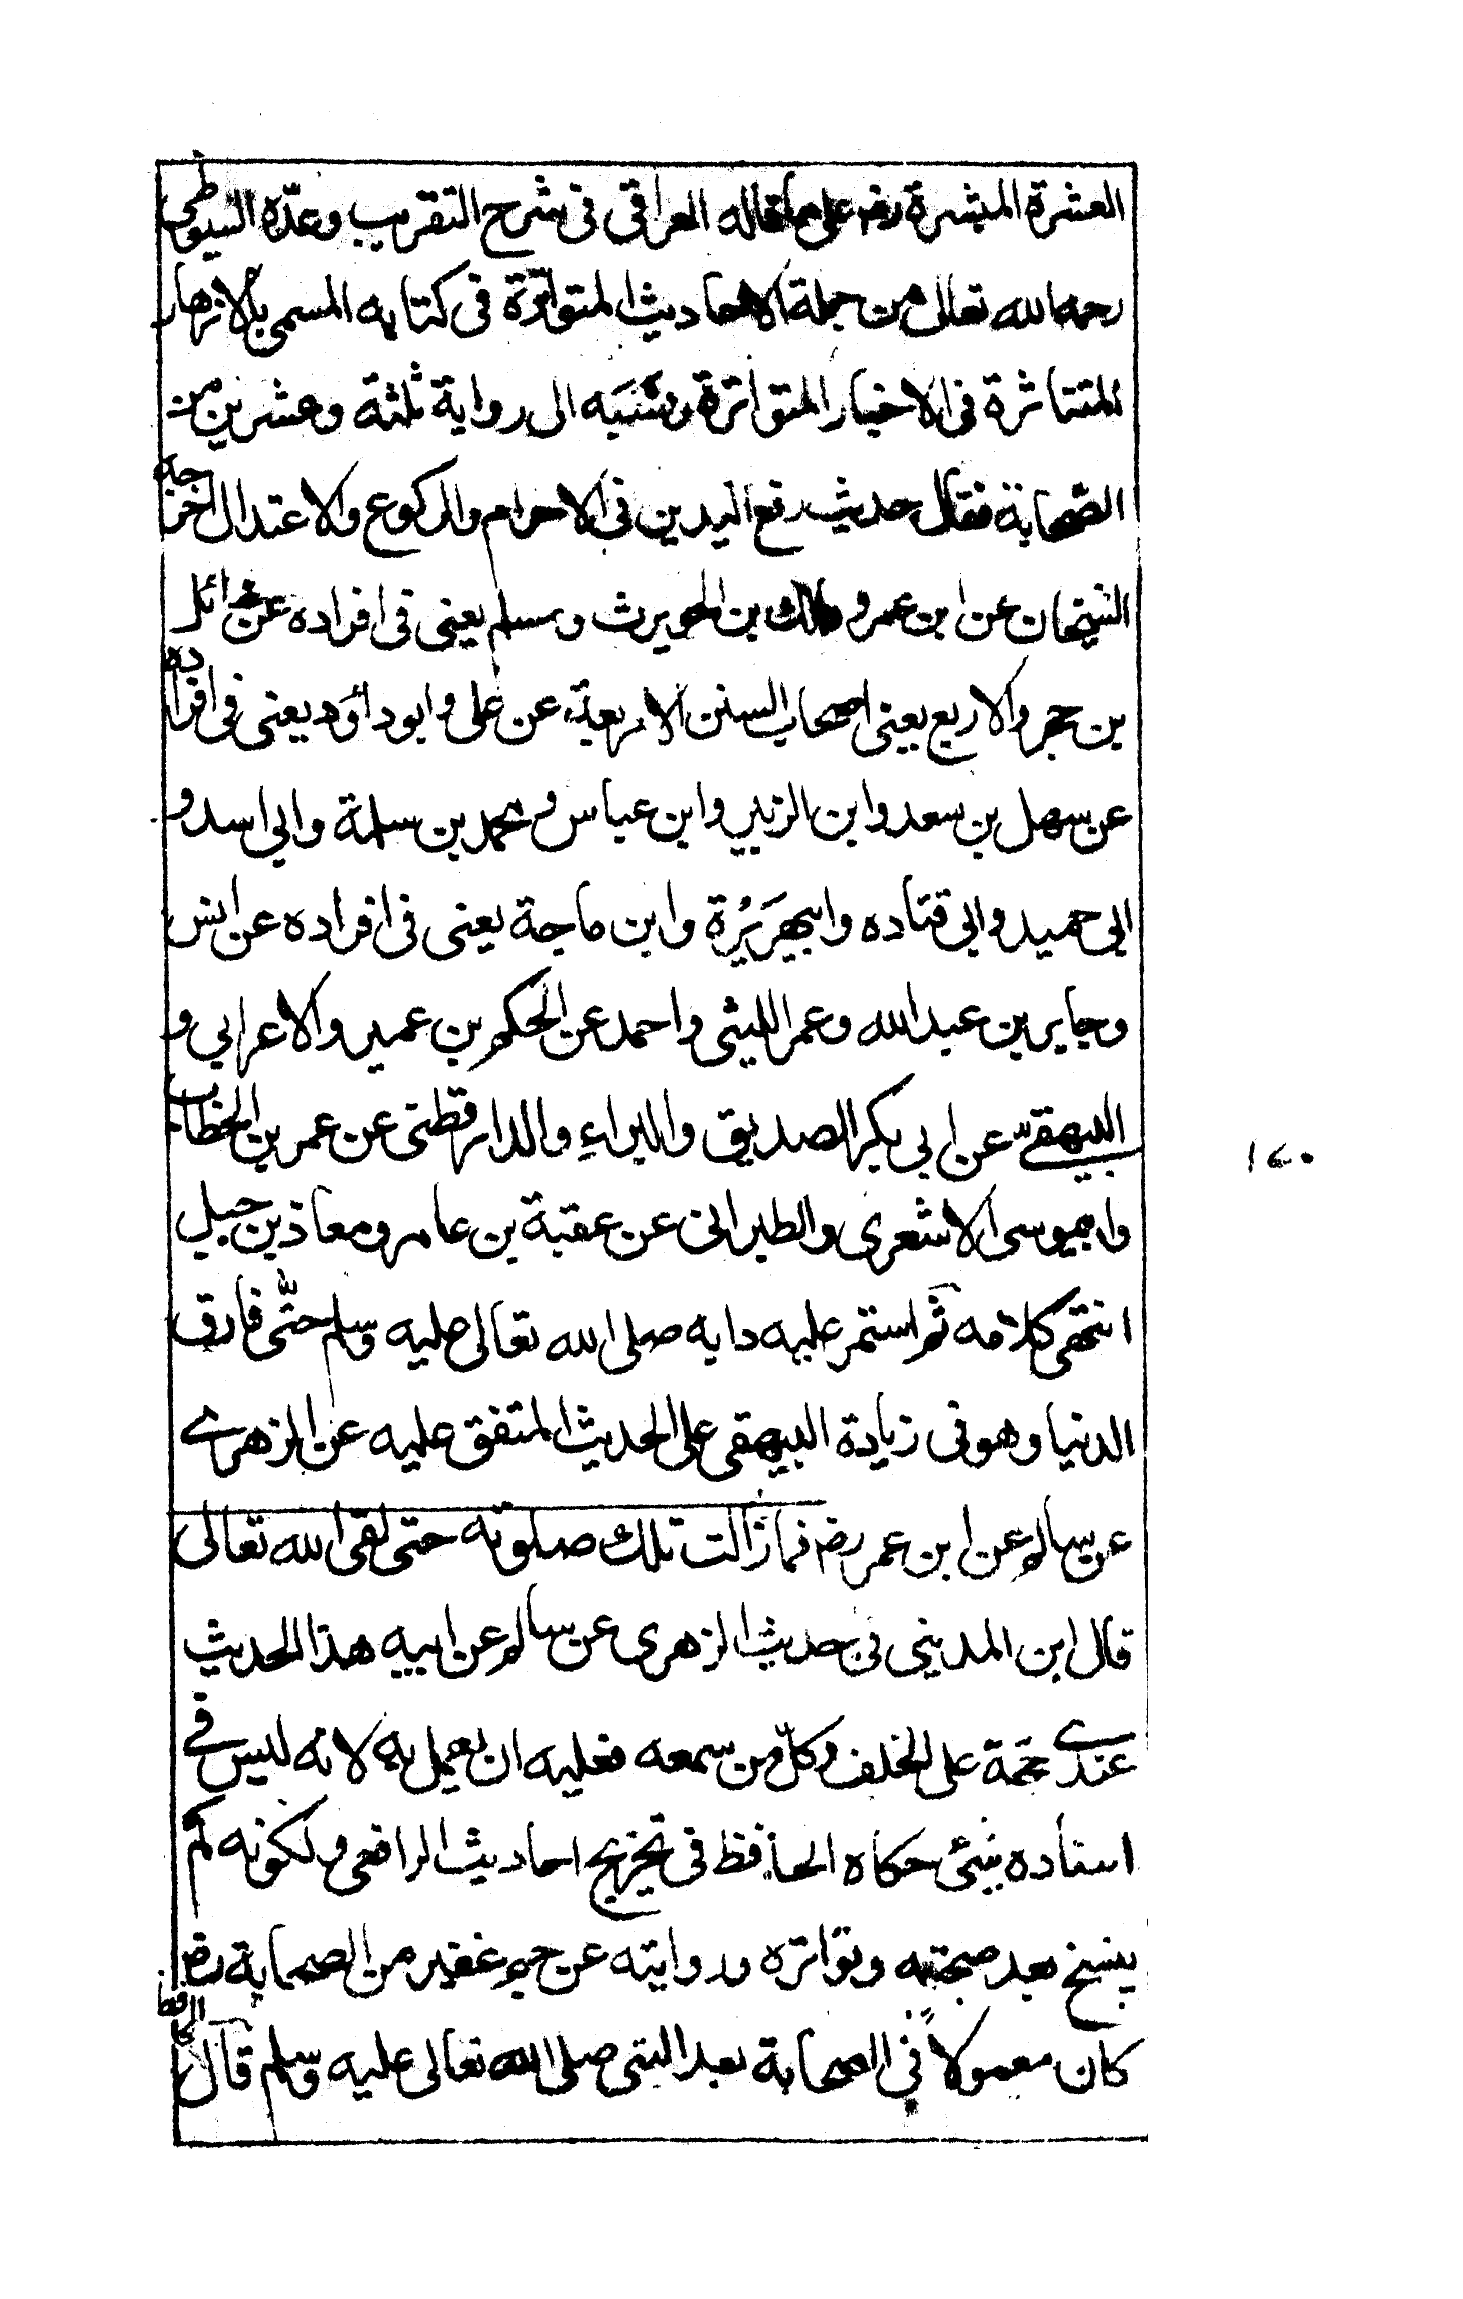 العشرة المبشرة رضـ على ما قاله العراقى فى شرح التقريب وعدّه السيوطى
رحمه الله تعالى من جملة الاحاديث المتواترة فى كتابه المسمى بالازهار
المتناثرة فى الاخبار المتواترة ونسبه الى رواية ثلثة وعشرين من
الصحابة فقال حديث رفع اليدين فى الاحرام والركوع والاعتدال اخرجه
الشيخان عن ابن عمر و مالك بن الحويرث ومسلم يعنى فى افراده عن وائل
بن حجر والاربع يعنى اصحاب السنن الاربعة عن على وابو داؤد يعنى فى افراده
عن سهل بن سعد وابن الزبير وابن عباس ومحمد بن سلمة وابى اسد و
ابى حميد وابى قتاده وابيهريرة وابن ماجة يعنى فى افراده عن انس
وجابر بن عبد الله وعمر الليثى واحمد عن الحكم بن عمير والاعرابي و
البيهقے عن ابي بكر الصديق والبراء والدارقطنى عن عمر بن الخطاب
وابيموسى الاشعرى والطبرانى عن عقبة بن عامر ومعاذ بن جبل
انتهى كلامه ثم استمر عليه دابه صلى الله تعالى عليه وسلم حتّى فارق
الدنيا وهو فى زيادة البيهقى على الحديث المتفق عليه عن الزهرے
عن سالم عن ابن عمر رضـ فما زالت تلك صلوته حتى لقى الله تعالى
قال ابن المدينى فى حديث الزهرى عن سالم عن ابيه هذا الحديث
عندے حجة على الخلف وكلّ من سمعه فعليه ان يعمل به لانه ليس فے
اسناده شئ حكاه الحافظ فى تخريج احاديث الرافعى ولكونه لم
ينسخ بعد صحته وتواتره وروايته عن جم غفير من الصحابة رضـ
كان معمولاً فى الصحابة بعد النبى صلى الله تعالى عليه وسلم قال
١٤٠